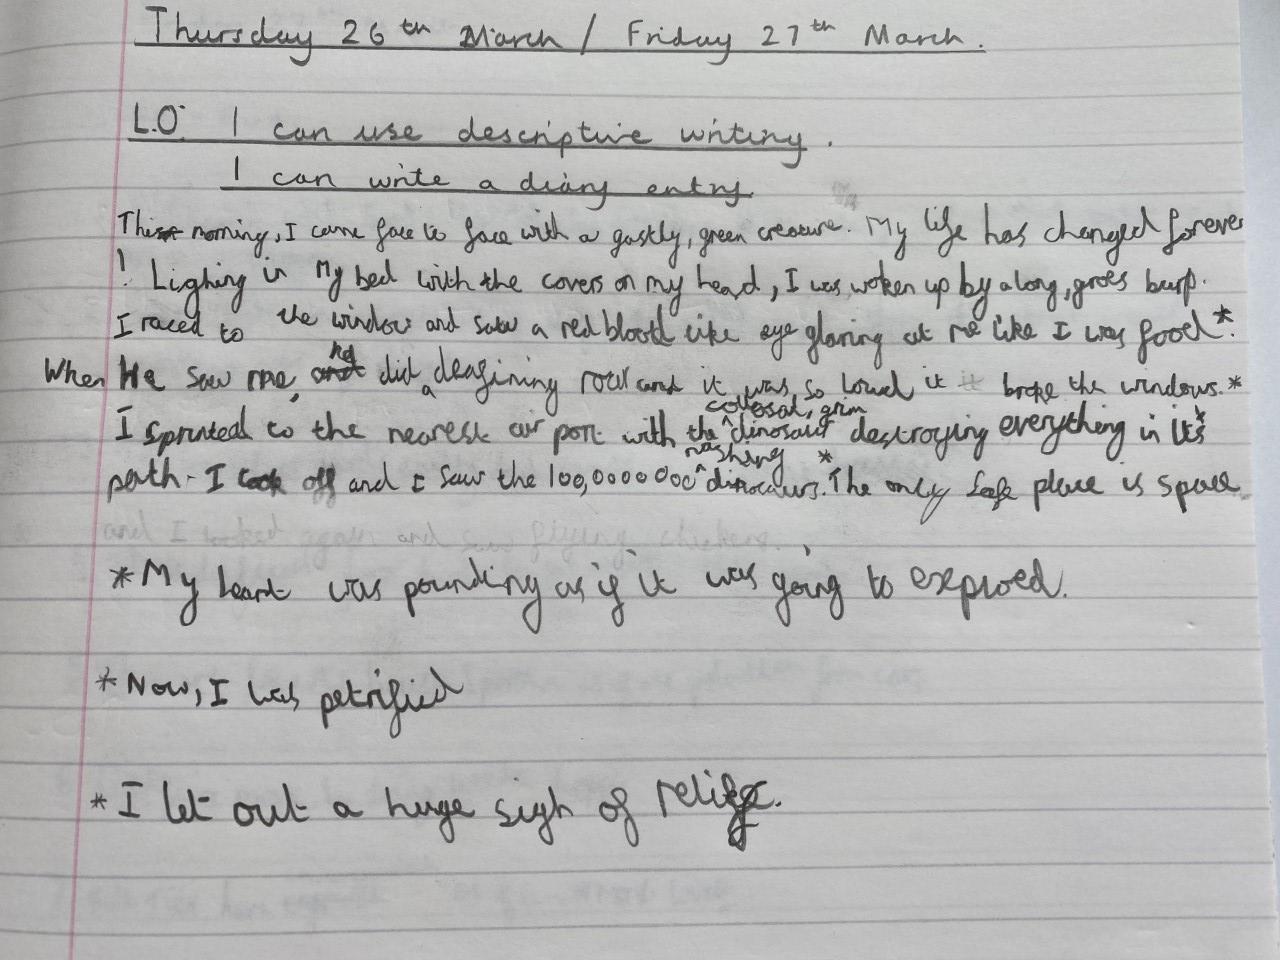 Thursday 26th March / Friday 27th March.
L.O: I can use descriptive writing.
I can write a diary entry.
This morning, I came face to face with a gastly, green creature. My life has changed forever
! Lighing in My bed with the covers on my head, I was woken up by a long, groes burp.
I raced to the window and saw a red blood like eye glaring at me like I was food*.
When He saw me, he did a deafining roar and it was so loud it broke the windows.*
colossal, grim
I sprinted to the nearest air port with the ^ dinosaur destroying everything in it's
path. I took off and I saw the 100,0000 000 ^ dinocaurs.* The only safe place is space
*My heart was pounding as if it was going to exploed.
*Now, I was petrified
*I let out a huge sigh of relife.